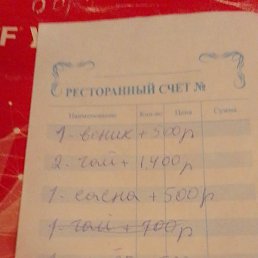 РЕСТОРАННЫЙ СЧЕТ №
Наименование Кол-во Цена Сумма
1 - веник + 500 р
2 - чай + 1.400 р
1 - сосна + 500 р
1 - чай + 700 р